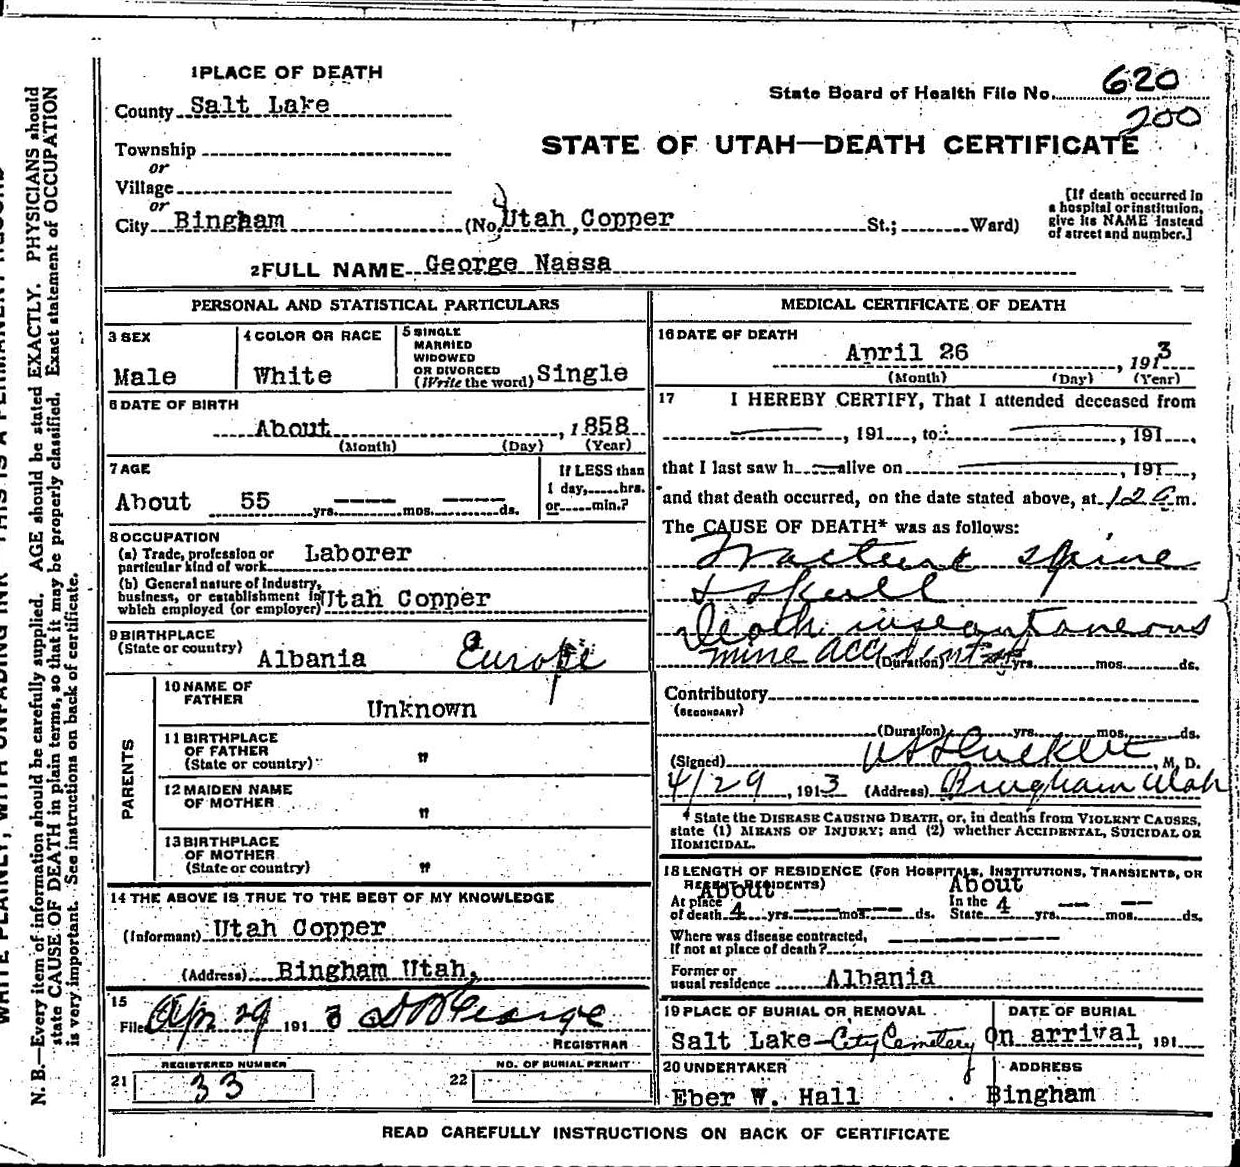 1 PLACE OF DEATH
County Salt Lake
State Board of Health File No. 620
200
STATE OF UTAH—DEATH CERTIFICATE
Township
or
Village
or
City Bingham (No. Utah Copper St.; Ward)
[If death occurred in a hospital or institution, give its NAME instead of street and number.]
2 FULL NAME George Nassa
PERSONAL AND STATISTICAL PARTICULARS
3 SEX
Male
4 COLOR OR RACE
White
5 SINGLE
MARRIED
WIDOWED
OR DIVORCED
(Write the word) Single
6 DATE OF BIRTH
About , 1858
(Month) (Day) (Year)
7 AGE
About 55 yrs. mos. ds.
If LESS than
1 day, hrs.
or min.?
8 OCCUPATION
(a) Trade, profession or
particular kind of work Laborer
(b) General nature of industry,
business, or establishment in
which employed (or employer) Utah Copper
9 BIRTHPLACE
(State or country) Albania Europe
PARENTS
10 NAME OF
FATHER Unknown
11 BIRTHPLACE
OF FATHER
(State or country) "
12 MAIDEN NAME
OF MOTHER "
13 BIRTHPLACE
OF MOTHER
(State or country) "
14 THE ABOVE IS TRUE TO THE BEST OF MY KNOWLEDGE
(Informant) Utah Copper
(Address) Bingham Utah.
15
Filed Apr 29 1913
REGISTRAR
REGISTERED NUMBER
21 33
NO. OF BURIAL PERMIT
22
MEDICAL CERTIFICATE OF DEATH
16 DATE OF DEATH
April 26 , 1913
(Month) (Day) (Year)
17 I HEREBY CERTIFY, That I attended deceased from
, 191 , to , 191 ,
that I last saw h alive on , 191 ,
and that death occurred, on the date stated above, at 12 a m.
The CAUSE OF DEATH* was as follows:
Fracture spine
& skull
Death instantaneous
mine accident
(Duration) yrs. mos. ds.
Contributory
(SECONDARY)
(Duration) yrs. mos. ds.
(Signed) , M. D.
4/29 , 1913 (Address) Bingham Utah
* State the DISEASE CAUSING DEATH, or, in deaths from VIOLENT CAUSES,
state (1) MEANS OF INJURY; and (2) whether ACCIDENTAL, SUICIDAL OR
HOMICIDAL.
18 LENGTH OF RESIDENCE (FOR HOSPITALS, INSTITUTIONS, TRANSIENTS, OR
RECENT RESIDENTS)
About About
At place In the
of death 4 yrs. mos. ds. State 4 yrs. mos. ds.
Where was disease contracted,
If not at place of death?
Former or
usual residence Albania
19 PLACE OF BURIAL OR REMOVAL
Salt Lake City Cemetery
DATE OF BURIAL
On arrival, 191
20 UNDERTAKER
Eber W. Hall
ADDRESS
Bingham
READ CAREFULLY INSTRUCTIONS ON BACK OF CERTIFICATE
N. B.—Every item of information should be carefully supplied. AGE should be stated EXACTLY. PHYSICIANS should
state CAUSE OF DEATH in plain terms, so that it may be properly classified. Exact statement of OCCUPATION
is very important. See instructions on back of certificate.